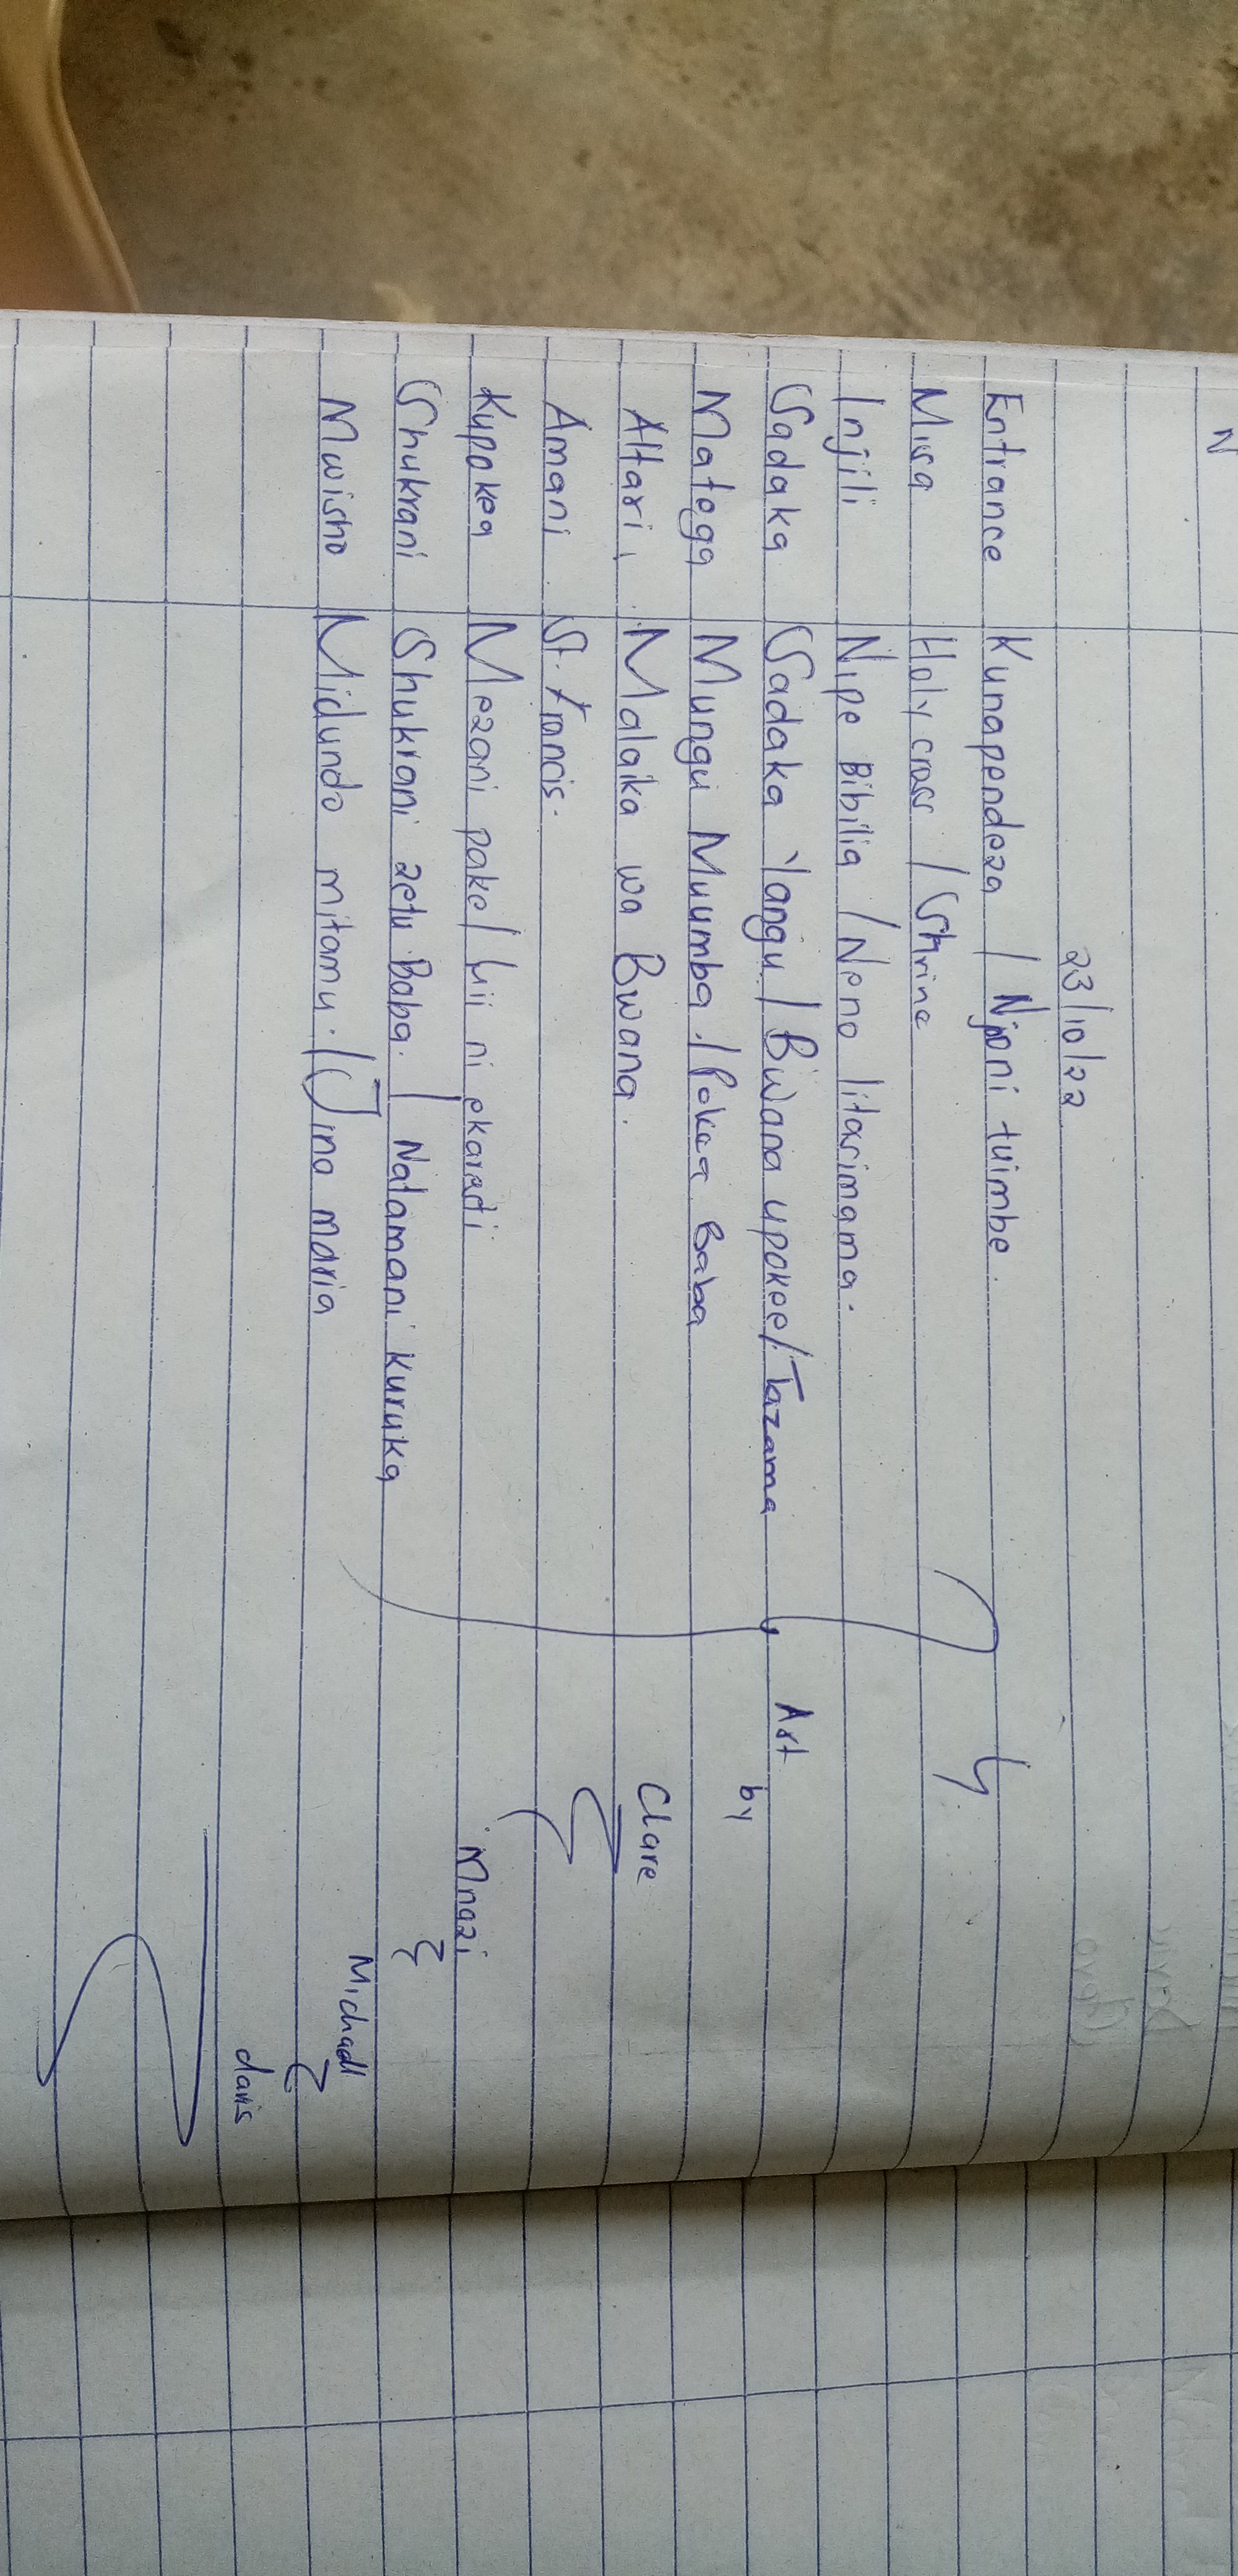 23/10/22
Entrance Kunapendeza / Njoni tuimbe.
Misa Holy cross / Shrine
Injili Nipe Bibilia / Neno litasimama.
Sadaka Sadaka Yangu / Bwana upokee / Tazama
Matega Mungu Muumba / Pokea Baba
Altari, Malaika wa Bwana.
Amani St. Francis.
Kupokea Mezani pake / hii ni ekaradi
Shukrani Shukrani zetu Baba. / Natamani kuruka
Mwisho Midundo mitamu. / Jina maria
Art
by
Clare
Mnazi
Michael
davis